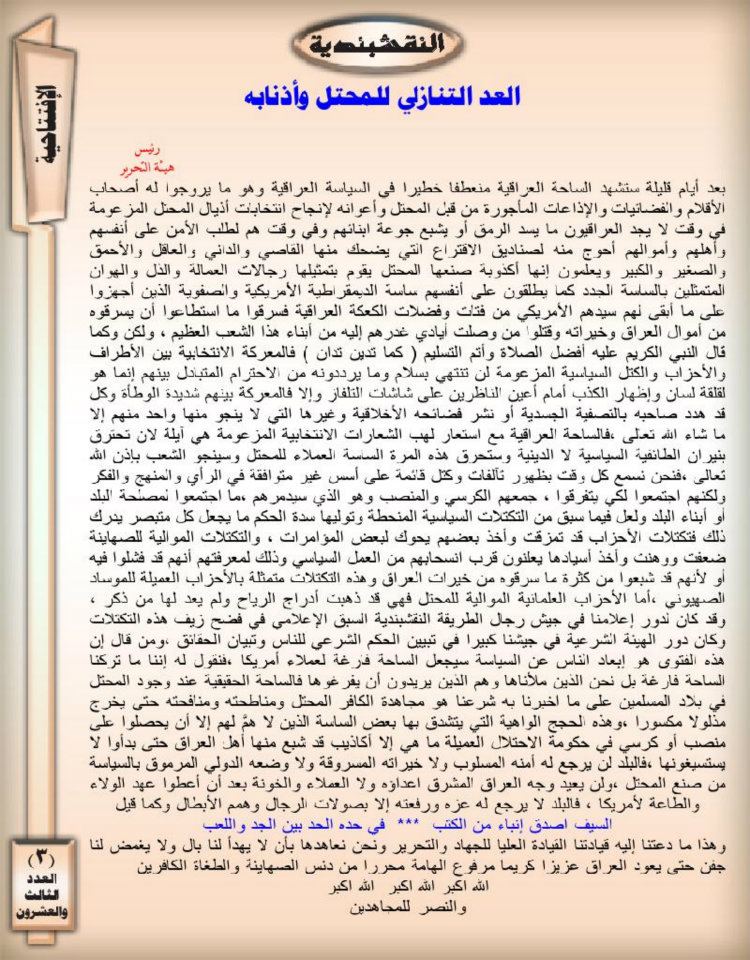 النقشبندية
الإفتتاحية
العد التنازلي للمحتل وأذنابه
رئيس
هيئة التحرير
بعد أيام قليلة ستشهد الساحة العراقية منعطفا خطيرا في السياسة العراقية وهو ما يروجوا له أصحاب
الأقلام والفضائيات والإذاعات المأجورة من قبل المحتل وأعوانه لإنجاح انتخابات أذيال المحتل المزعومة
في وقت لا يجد العراقيون ما يسد الرمق أو يشبع جوعة ابنائهم وفي وقت هم لطلب الأمن على أنفسهم
وأهلهم وأموالهم أحوج منه لصناديق الاقتراع التي يضحك منها القاصي والداني والعاقل والأحمق
والصغير والكبير ويعلمون إنها أكذوبة صنعها المحتل يقوم بتمثيلها رجالات العمالة والذل والهوان
المتمثلين بالساسة الجدد كما يطلقون على أنفسهم ساسة الديمقراطية الأمريكية والصفوية الذين أجهزوا
على ما أبقى لهم سيدهم الأمريكي من فتات وفضلات الكعكة العراقية فسرقوا ما استطاعوا أن يسرقوه
من أموال العراق وخيراته وقتلوا من وصلت أيادي غدرهم إليه من أبناء هذا الشعب العظيم ، ولكن وكما
قال النبي الكريم عليه أفضل الصلاة وأتم التسليم ( كما تدين تدان ) فالمعركة الانتخابية بين الأطراف
والأحزاب والكتل السياسية المزعومة لن تنتهي بسلام وما يرددونه من الاحترام المتبادل بينهم إنما هو
لقلقة لسان وإظهار الكذب أمام أعين الناظرين على شاشات التلفاز وإلا فالمعركة بينهم شديدة الوطأة وكل
قد هدد صاحبه بالتصفية الجسدية أو نشر فضائحه الأخلاقية وغيرها التي لا ينجو منها واحد منهم إلا
ما شاء الله تعالى ،فالساحة العراقية مع استعار لهب الشعارات الانتخابية المزعومة هي آيلة لان تحترق
بنيران الطائفية السياسية لا الدينية وستحرق هذه المرة الساسة العملاء للمحتل وسينجو الشعب بإذن الله
تعالى ،فنحن نسمع كل وقت بظهور تآلفات وكتل قائمة على أسس غير متوافقة في الرأي والمنهج والفكر
ولكنهم اجتمعوا لكي يتفرقوا ، جمعهم الكرسي والمنصب وهو الذي سيدمرهم ،ما اجتمعوا لمصلحة البلد
أو أبناء البلد ولعل فيما سبق من التكتلات السياسية المنحطة وتوليها سدة الحكم ما يجعل كل متبصر يدرك
ذلك فتكتلات الأحزاب قد تمزقت وأخذ بعضهم يحوك لبعض المؤامرات ، والتكتلات الموالية للصهاينة
ضعفت ووهنت وأخذ أسيادها يعلنون قرب انسحابهم من العمل السياسي وذلك لمعرفتهم أنهم قد فشلوا فيه
أو لأنهم قد شبعوا من كثرة ما سرقوه من خيرات العراق وهذه التكتلات متمثلة بالأحزاب العميلة للموساد
الصهيوني ،أما الأحزاب العلمانية الموالية للمحتل فهي قد ذهبت أدراج الرياح ولم يعد لها من ذكر ،
وقد كان لدور إعلامنا في جيش رجال الطريقة النقشبندية السبق الإعلامي في فضح زيف هذه التكتلات
وكان دور الهيئة الشرعية في جيشنا كبيرا في تبيين الحكم الشرعي للناس وتبيان الحقائق ،ومن قال إن
هذه الفتوى هو إبعاد الناس عن السياسة سيجعل الساحة فارغة لعملاء أمريكا ،فنقول له إننا ما تركنا
الساحة فارغة بل نحن الذين ملأناها وهم الذين يريدون أن يفرغوها فالساحة الحقيقية عند وجود المحتل
في بلاد المسلمين على ما اخبرنا به شرعنا هو مجاهدة الكافر المحتل ومناطحته ومنافحته حتى يخرج
مذلولا مكسورا ،وهذه الحجج الواهية التي يتشدق بها بعض الساسة الذين لا همّ لهم إلا أن يحصلوا على
منصب أو كرسي في حكومة الاحتلال العميلة ما هي إلا أكاذيب قد شبع منها أهل العراق حتى بدأوا لا
يستسيغونها ،فالبلد لن يرجع له أمنه المسلوب ولا خيراته المسروقة ولا وضعه الدولي المرموق بالسياسة
من صنع المحتل ،ولن يعيد وجه العراق المشرق اعداؤه ولا العملاء والخونة بعد أن أعطوا عهد الولاء
والطاعة لأمريكا ، فالبلد لا يرجع له عزه ورفعته إلا بصولات الرجال وهمم الأبطال وكما قيل
السيف اصدق إنباء من الكتب *** في حده الحد بين الجد واللعب
وهذا ما دعتنا إليه قيادتنا القيادة العليا للجهاد والتحرير ونحن نعاهدها بأن لا يهدأ لنا بال ولا يغمض لنا
جفن حتى يعود العراق عزيزا كريما مرفوع الهامة محررا من دنس الصهاينة والطغاة الكافرين
الله اكبر الله اكبر الله اكبر
والنصر للمجاهدين
(٣)
العدد
الثالث
والعشرون